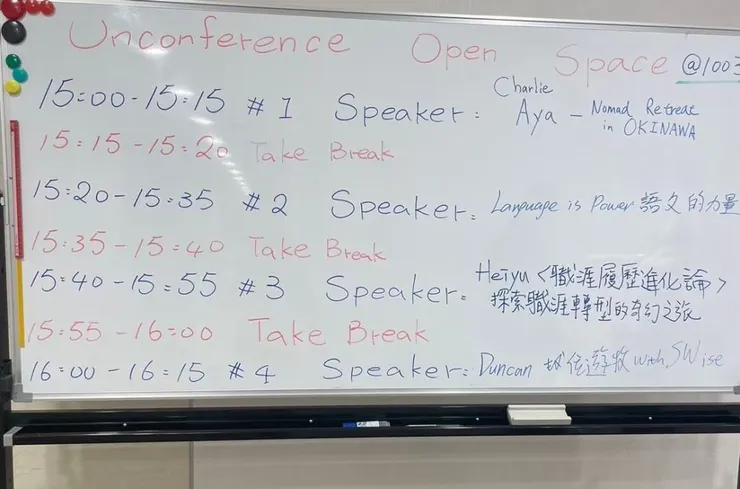 Unconference Open Space @1003
15:00-15:15 #1 Speaker: Charlie
Aya - Nomad Retreat
in OKINAWA
15:15-15:20 Take Break
15:20-15:35 #2 Speaker: Language is Power 語文的力量
15:35-15:40 Take Break
15:40-15:55 #3 Speaker: Heiyu <職涯履歷進化論>
探索職涯轉型的奇幻之旅
15:55-16:00 Take Break
16:00-16:15 #4 Speaker: Duncan with SWise